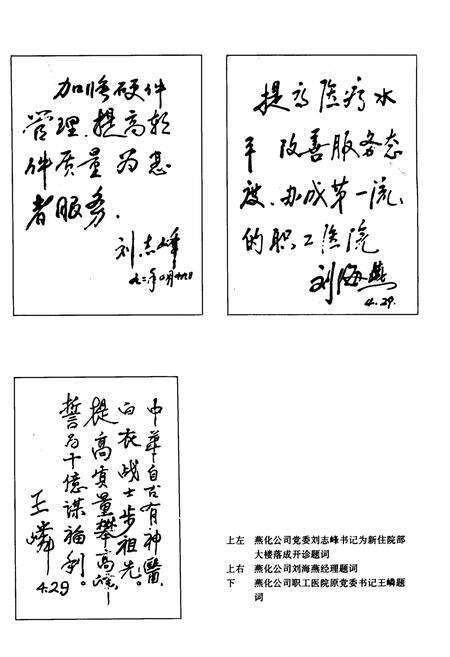 加强硬件
管理.提高软
件质量为患
者服务.
刘志峰
九二年四月
提高医疗水
平 改善服务态
度、办成第一流、
的职工医院
刘海燕
4.29.
中华自古有神醫,
白衣战士步祖先。
提高質量攀高峰,
誓为十億谋福利。
王嶙
4.29
上左 燕化公司党委刘志峰书记为新住院部
大楼落成开诊题词
上右 燕化公司刘海燕经理题词
下 燕化公司职工医院原党委书记王嶙题
词